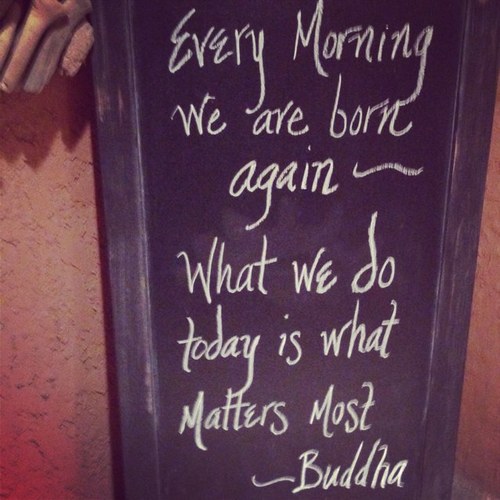 Every Morning
we are born
again ~
What we do
today is what
Matters Most
~Buddha